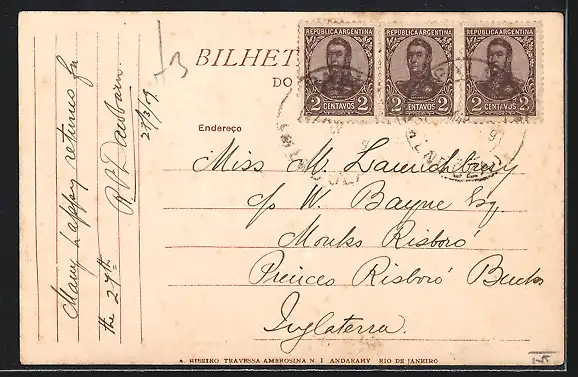 BILHET
DO
REPUBLICA ARGENTINA
2 CENTAVOS 2
REPUBLICA ARGENTINA
2 CENTAVOS 2
REPUBLICA ARGENTINA
2 CENTAVOS 2
Endereço
Miss M.
c/o W. Bayne Esq
Monks Risboro'
Princes Risboro' Bucks
Inglaterra.
Many happy returns for
the 27th
27/3/09
A. RIBEIRO TRAVESSA AMBROSINA N. 1 ANDARAHY RIO DE JANEIRO